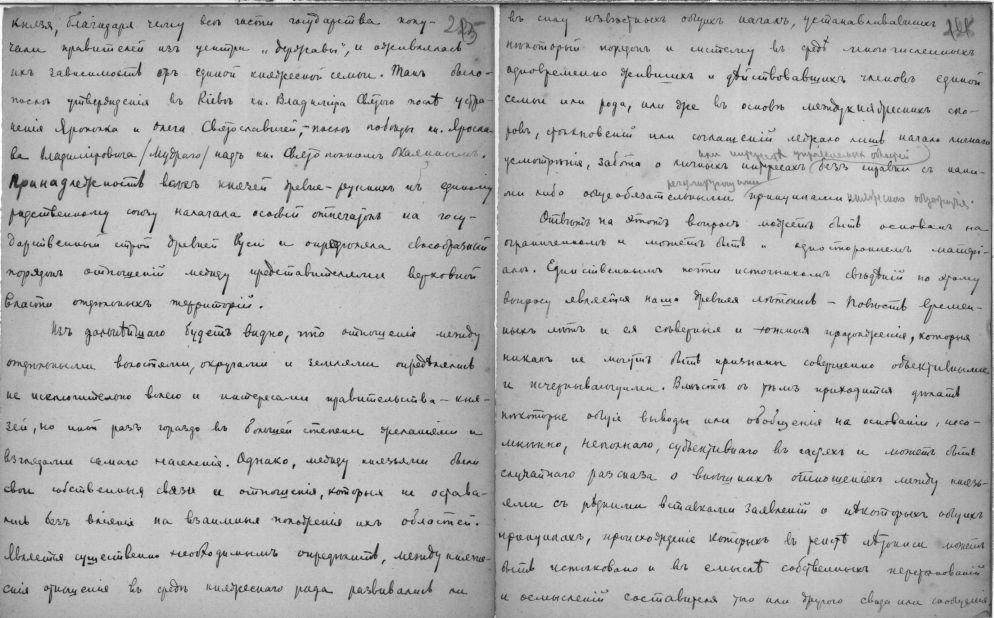 князя, благодаря чему все части государства полу-
чали правителей из центра „державы", и оживлялась
их зависимость от единой княжеской семьи. Так было
после утверждения в Киевѣ кн. Владиміра Святого послѣ устра-
ненія Ярополка и Олега Святославичей, - послѣ побѣды кн. Яросла-
ва Владиміровича /Мудраго/ надъ кн. Святополкомъ Окаяннымъ.
Принадлежность всѣхъ князей древне-русскихъ къ единому
родственному союзу налагала особый отпечатокъ на госу-
дарственный строй древней Руси и опредѣляла своеобразный
порядокъ отношеній между представителями верховной
власти отдѣльныхъ территорій.
Изъ дальнѣйшаго будетъ видно, что отношенія между
отдѣльными волостями, округами и землями опредѣлялись
не исключительно волею и интересами правительства - кня-
зей, но иной разъ гораздо въ большей степени желаніями и
взглядами самаго населенія. Однако, между князьями были
свои собственныя связи и отношенія, которыя не остава-
лись безъ вліянія на взаимныя положенія ихъ областей.
Является существенно необходимымъ опредѣлить, междукняже-
скія отношенія въ средѣ княжескаго рода развивались ли
въ силу извѣстныхъ общихъ началъ, устанавливавшихъ
нѣкоторый порядокъ и систему въ средѣ многочисленныхъ
одновременно жившихъ и дѣйствовавшихъ членовъ единой
семьи или рода, или же въ основѣ междукняжескихъ спо-
ровъ, столкновеній или соглашеній лежало лишь начало личнаго
усмотрѣнія, забота о личныхъ интересахъ безъ справки съ каки-
ми либо общеобязательными регулирующими принципами
Отвѣтъ на этотъ вопросъ можетъ быть основанъ на
ограниченномъ и можетъ быть и одностороннемъ матері-
алѣ. Единственнымъ почти источникомъ свѣдѣній по этому
вопросу является наша древняя лѣтопись - Повѣсть времен-
ныхъ лѣтъ и ея сѣверныя и южныя продолженія, которыя
никакъ не могутъ быть признаны совершенно объективными
и исчерпывающими. Вмѣстѣ съ тѣмъ приходится дѣлать
нѣкоторые общіе выводы или обобщенія на основаніи, несо-
мнѣнно, неполнаго, субъективнаго въ частяхъ и можетъ быть
случайнаго разсказа о внѣшнихъ отношеніяхъ между князь-
ями съ рѣдкими вставками заявленій о нѣкоторыхъ общихъ
принципахъ, происхожденіе которыхъ въ текстѣ лѣтописи можетъ
быть истолковано и въ смыслѣ собственныхъ перетолкованій
и осмысленій составителя того или другого свода или сообщенія